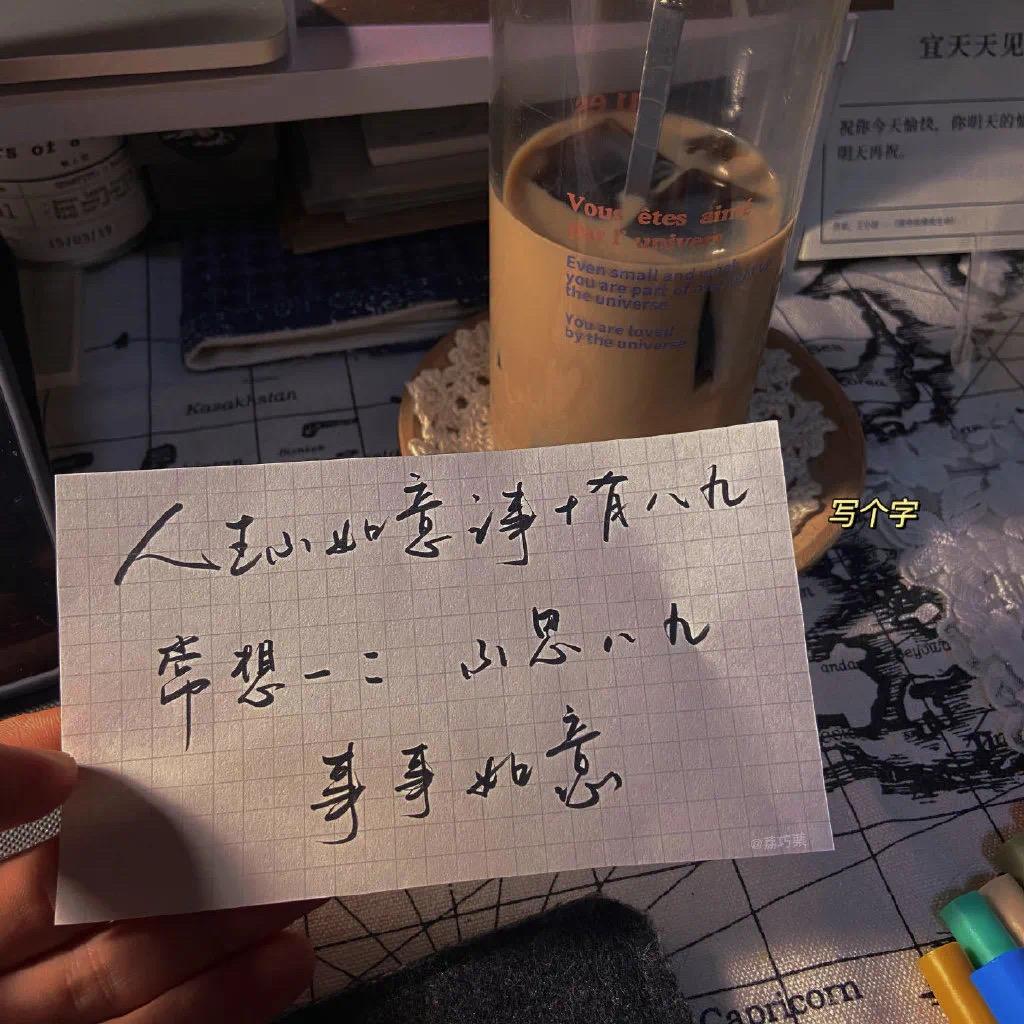 宜天天见
祝你今天愉快,你明天的愉
明天再祝。
rs of a
15/05/19
Vous êtes aimé
par l'univer
Even small and
you are part of
the universe
You are loved
by the universe
Kazakhstan
写个字
人生不如意事十有八九
常想一二 不思八九
事事如意
@荔巧菜
beyond
Capricorn